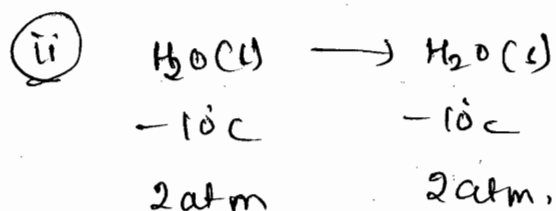 ii H₂O(l) → H₂O(s)
-10°C -10°C
2 atm 2 atm.